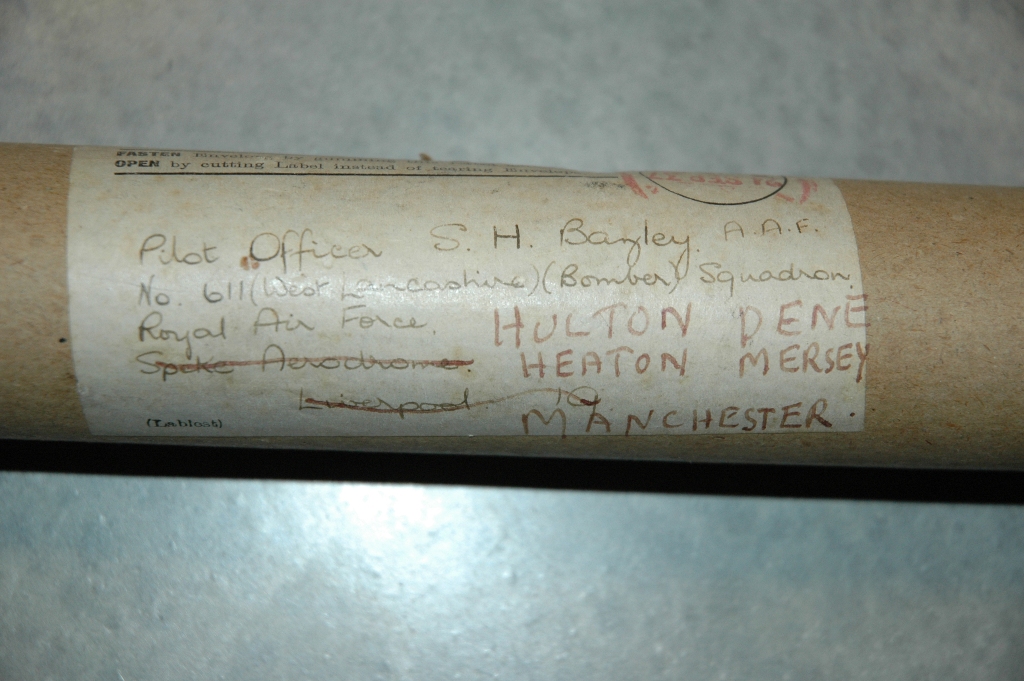 FASTEN Envelope by gumming
OPEN by cutting Label instead of tearing Envelope
Pilot Officer S. H. Bazley. A.A.F.
No. 611 (West Lancashire) (Bomber) Squadron,
Royal Air Force.
Speke Aerodrome.
Liverpool. 19
HULTON DENE
HEATON MERSEY
MANCHESTER.
(Lablost)